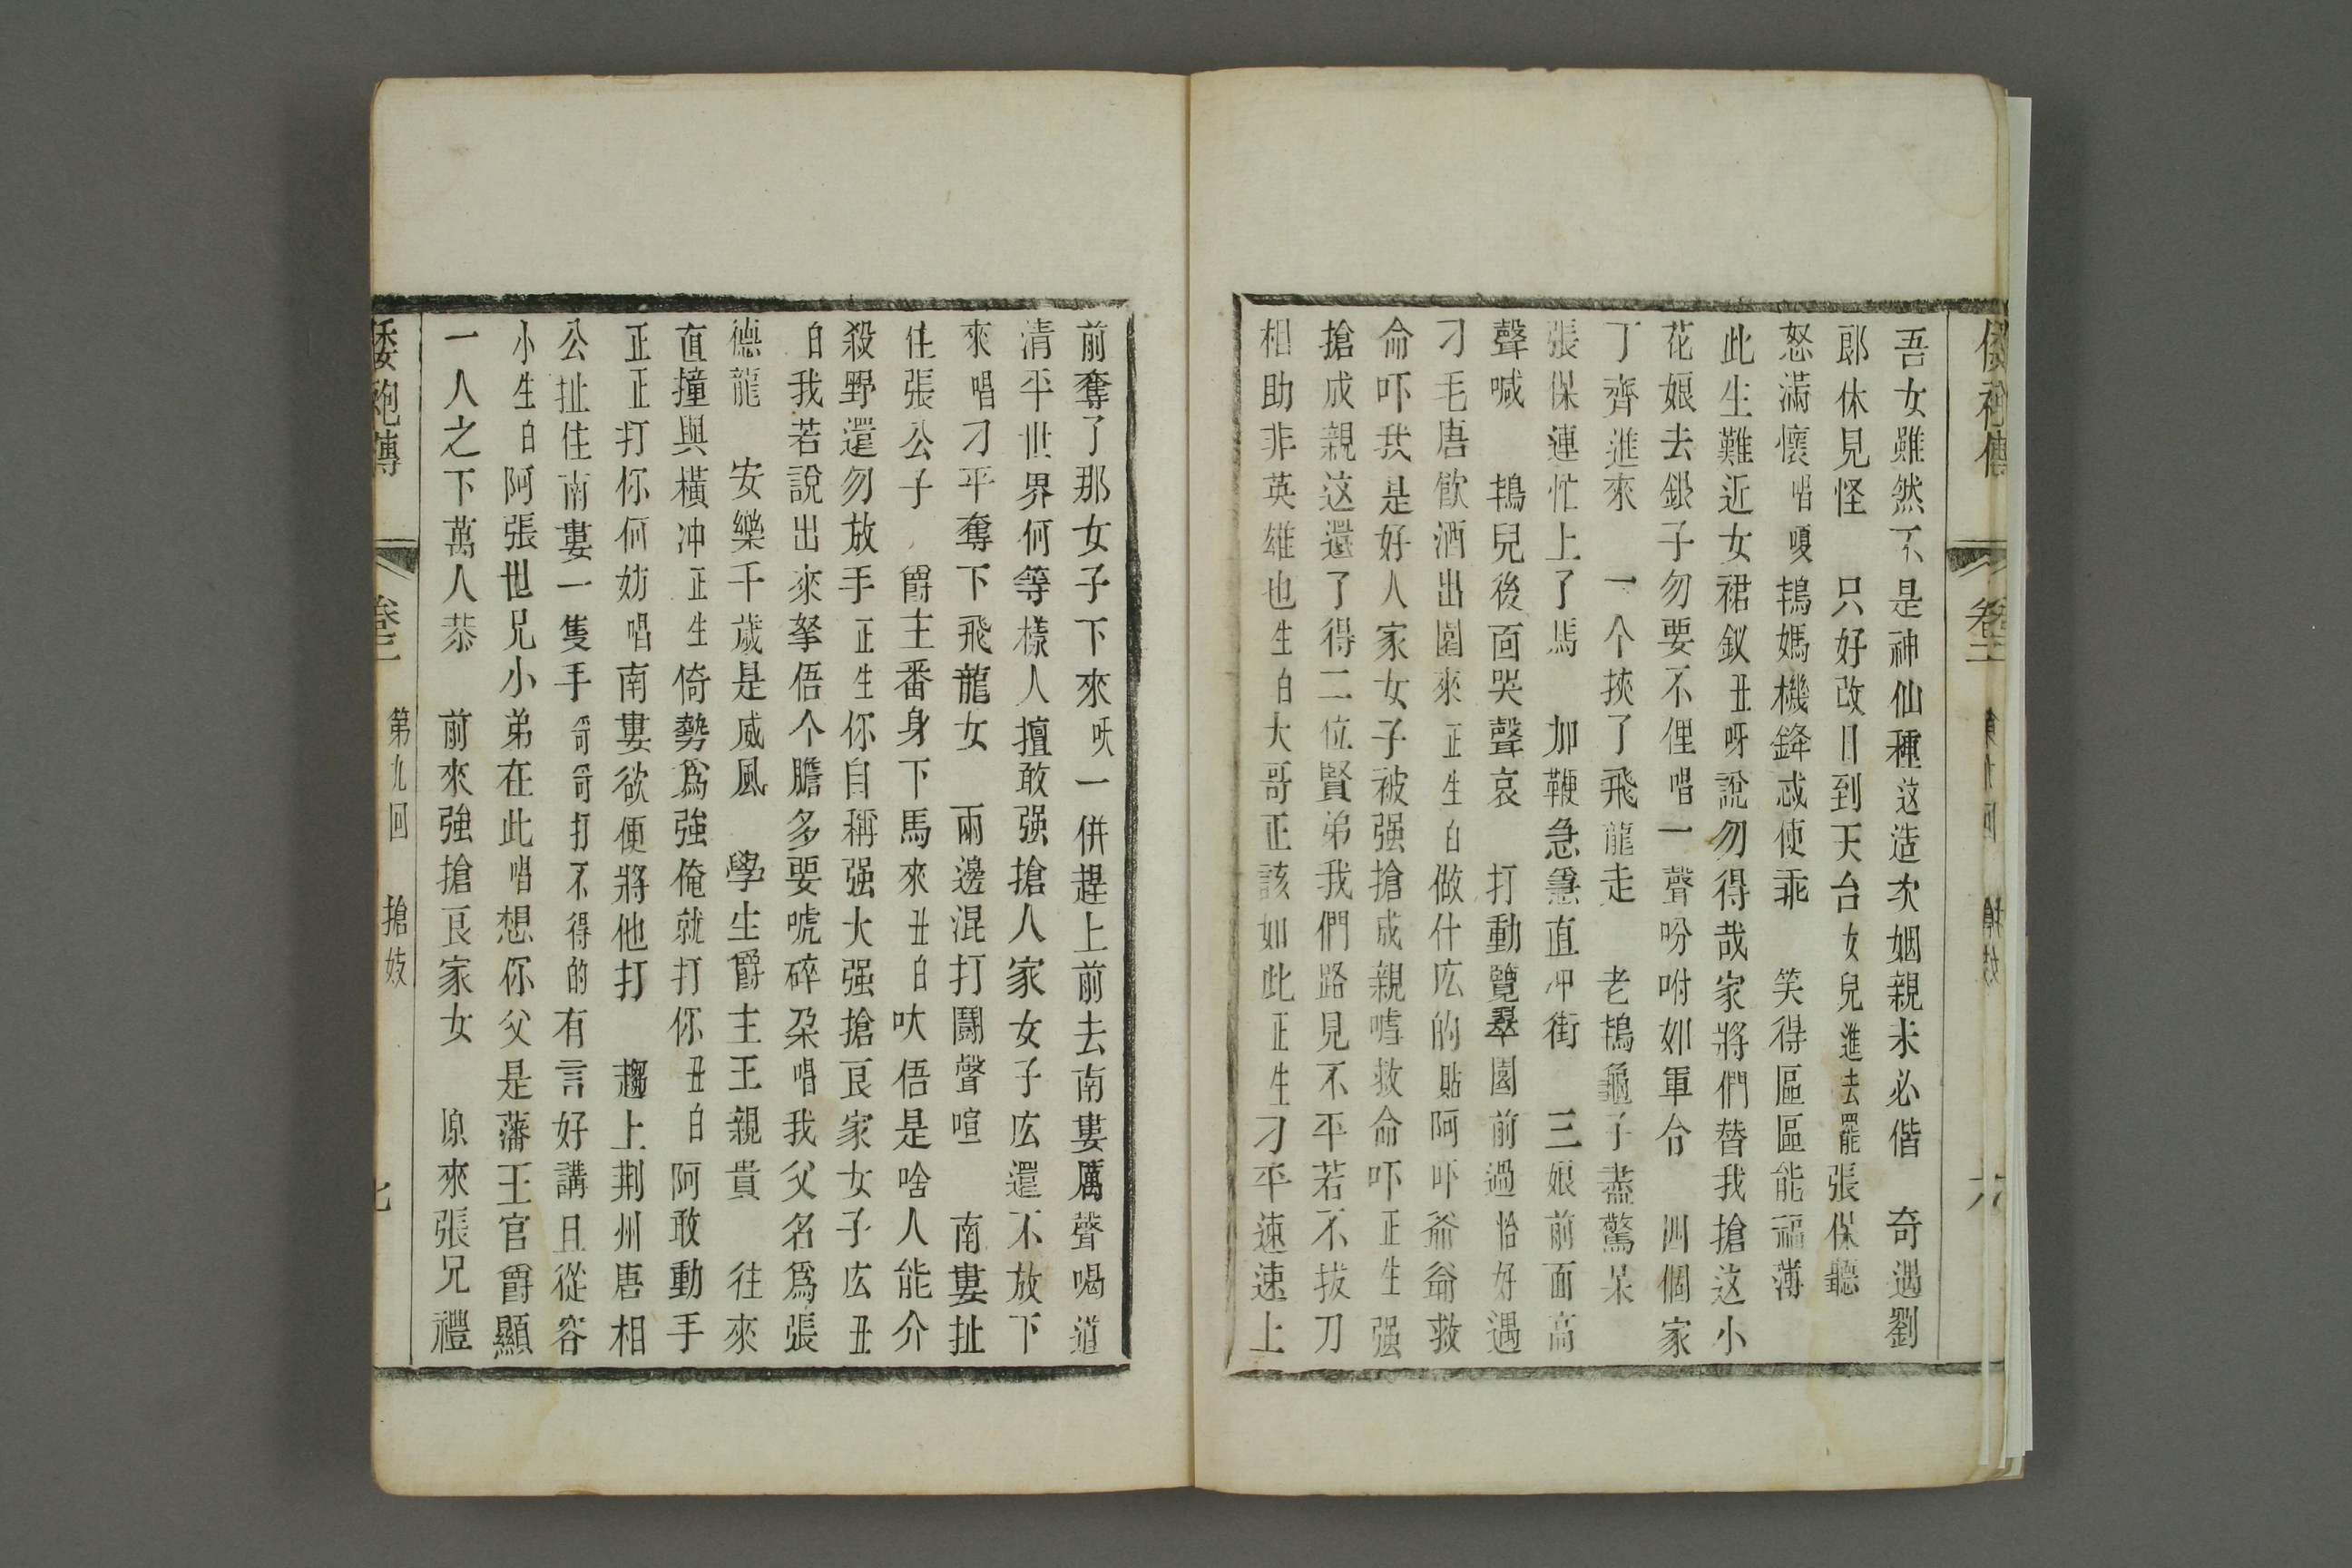 倭袍傳 卷二 第九回 搶妓 六
吾女雖然不是神仙種这造次姻親未必偕 奇遇劉
郎休見怪 只好改日到天台女兒進去罷張保聽
怒滿懷唱嗄鴇媽機鋒忒使乖 笑得區區能福薄
此生難近女裙釵丑呀說勿得哉家將們替我搶这小
花娘去銀子勿要不俚唱一聲吩咐如軍令 四個家
丁齊進來 一个挾了飛龍走 老鴇龜子盡驚呆
張保連忙上了馬 加鞭急急直冲街 三娘前面高
聲喊 鴇兒後面哭聲哀 打動覽翠園前過恰好遇
刁毛唐飲酒出園來正生白做什庅的貼阿吓爺爺救
命吓我是好人家女子被强搶成親嘘救命吓正生强
搶成親这還了得二位賢弟我們路見不平若不拔刀
相助非英雄也生白大哥正該如此正生刁平速速上
前奪了那女子下來吙一併趕上前去南婁厲聲喝道
清平世界何等樣人擅敢强搶人家女子庅還不放下
來唱刁平奪下飛龍女 兩邊混打鬪聲喧 南婁扯
住張公子 爵主番身下馬來丑白吙俉是啥人能介
殺野還勿放手正生你自稱强大强搶良家女子庅丑
白我若說出來拏俉个膽多要唬碎朶唱我父名爲張
德龍 安樂千歲是威風 學生爵主王親貴 往來
直撞與橫冲正生倚勢爲強俺就打你丑白阿敢動手
正正打你何妨唱南婁欲便將他打 趨上荆州唐相
公扯住南婁一隻手哥哥打不得的有言好講且從容
小生白阿張世兄小弟在此唱想你父是藩王官爵顯
一人之下萬人恭 前來強搶良家女 原來張兄禮
倭袍傳 卷二 第九回 搶妓 七